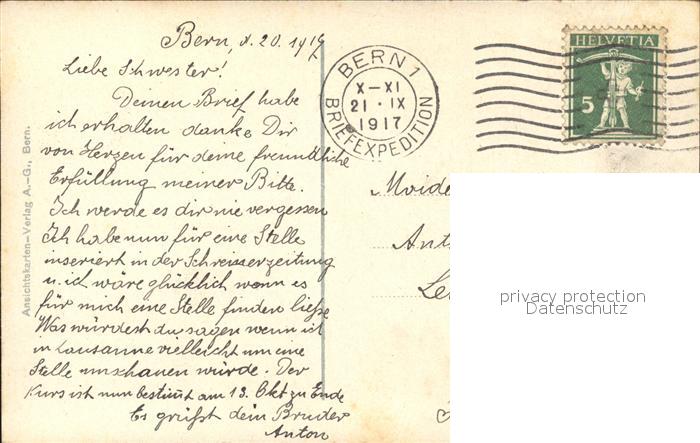 Bern, d. 20. 1917
Liebe Schwester!
Deinen Brief habe
ich erhalten danke Dir
von Herzen für deine freundliche
Erfüllung meiner Bitte.
Ich werde es dir nie vergessen
Ich habe nun für eine Stelle
inseriert in der Schreinerzeitung
u. ich wäre glücklich wenn es
für mich eine Stelle finden ließe
Was würdest du sagen wenn ich
in Lausanne vielleicht um eine
Stelle umschauen würde. Der
Kurs ist nun bestimt am 13. Okt zu Ende
Es grüßt dein Bruder
Anton
Ansichtskarten-Verlag A.-G., Bern.
BERN 1
X–XI
21·IX
1917
BRIEFEXPEDITION
HELVETIA
5
Ant
privacy protection
Datenschutz